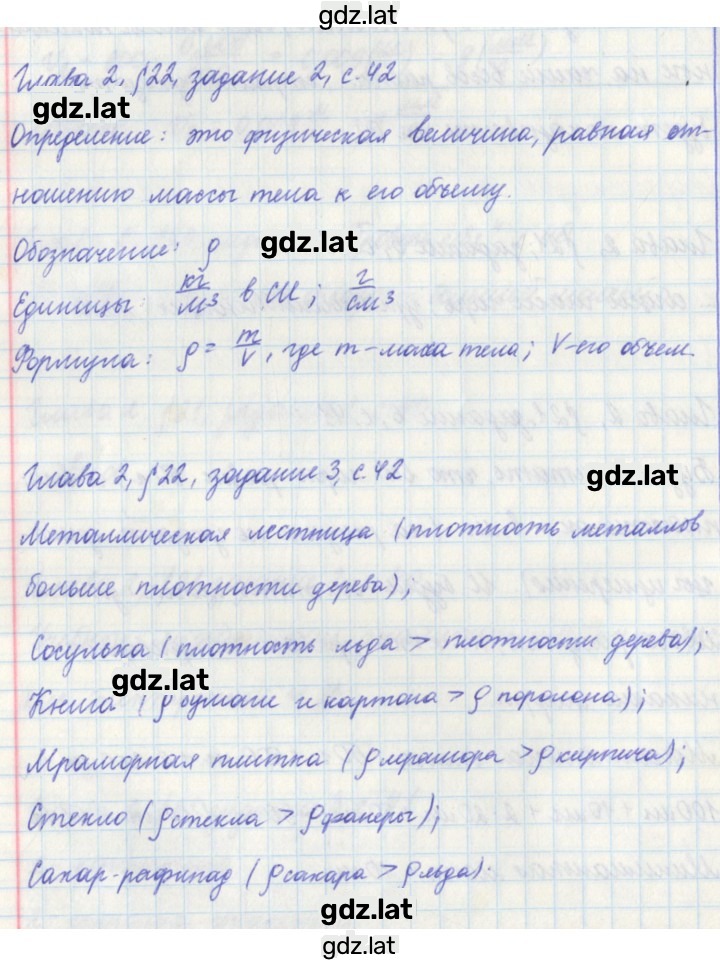 gdz.lat
Глава 2, §22, задание 2, с.42
gdz.lat
Определение: это физическая величина, равная от-
ношению массы тела к его объему.
Обозначение: ρ
gdz.lat
Единицы: кг/м³ в СИ; г/см³
Формула: ρ = m/V, где m-масса тела; V-его объем.
Глава 2, §22, задание 3, с.42
gdz.lat
Металлическая лестница (плотность металлов
больше плотности дерева);
Сосулька (плотность льда > плотности дерева);
gdz.lat
Книга (ρ бумаги и картона > ρ поролона);
Мраморная плитка (ρ мрамора > ρ кирпича);
Стекло (ρ стекла > ρ фанеры);
Сахар-рафинад (ρ сахара > ρ льда).
gdz.lat
gdz.lat